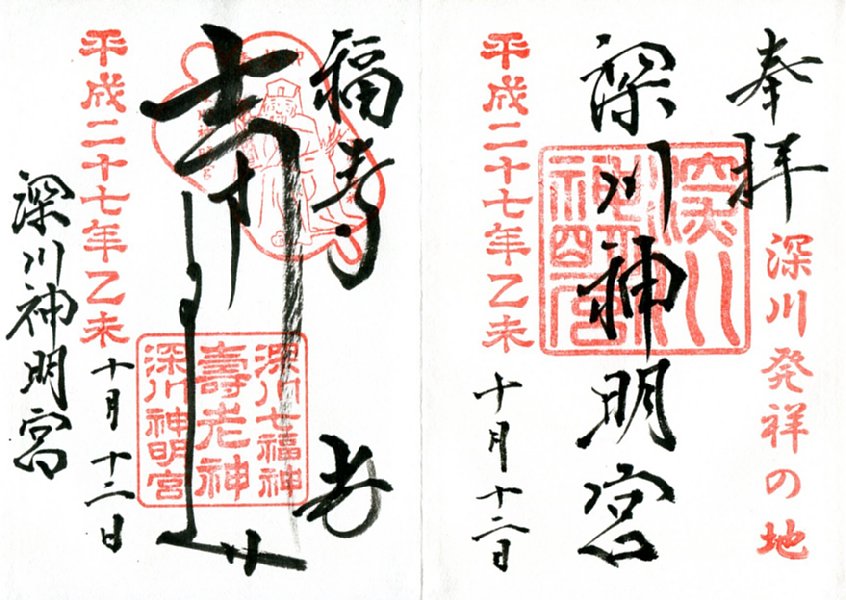 奉拝
深川発祥の地
深川神明宮
平成二十七年乙未
十月十二日
福寿
老
寿
深川七福神
壽老神
深川神明宮
平成二十七年乙未
十月十二日
深川神明宮